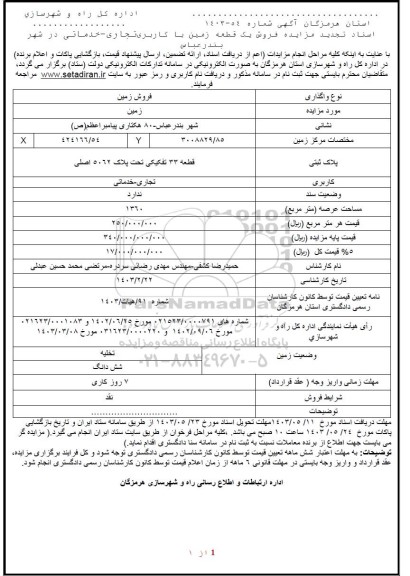 اداره کل راه و شهرسازی
استان هرمزگان آگهی شماره ۵۴-۱۴۰۳
اسناد تجدید مزایده فروش یک قطعه زمین با کاربری تجاری-خدماتی در شهر
بندرعباس
با عنایت به اینکه کلیه مراحل انجام مزایدات (اعم از دریافت اسناد، ارائه تضمین، ارسال پیشنهاد قیمت، بازگشایی پاکات و اعلام برنده)
در اداره کل راه و شهرسازی استان هرمزگان به صورت الکترونیکی در سامانه تدارکات الکترونیکی دولت (ستاد) برگزار می گردد،
متقاضیان محترم بایستی جهت ثبت نام در سامانه مذکور و دریافت نام کاربری و رمز عبور به سایت www.setadiran.ir مراجعه
فرمایند.
نوع واگذاری فروش زمین
مورد مزایده زمین
نشانی شهر بندرعباس-۸۰ هکتاری پیامبراعظم(ص)
مختصات مرکز زمین ۳۰۰۸۸۲۹/۸۵ Y ۴۲۴۱۶۶/۵۴ X
پلاک ثبتی قطعه ۳۳ تفکیکی تحت پلاک ۵۰۶۲ اصلی
کاربری تجاری-خدماتی
وضعیت سند ندارد
مساحت عرصه (متر مربع) ۱۳۶۰
قیمت هر متر مربع (ریال) ۲۵۰/۰۰۰/۰۰۰
قیمت پایه مزایده (ریال) ۳۴۰/۰۰۰/۰۰۰/۰۰۰
۵% قیمت کل (ریال) ۱۷/۰۰۰/۰۰۰/۰۰۰
نام کارشناس حمیدرضا کاشفی-مهندس مهدی رضائی سردره-مرتضی محمد حسین عبدلی
تاریخ کارشناسی ۱۴۰۳/۲/۲۲
نامه تعیین قیمت توسط کانون کارشناسان شماره ۹۱/هیات/۱۴۰۳
رسمی دادگستری استان هرمزگان
رأی هیأت نمایندگی اداره کل راه و شهرسازی
شماره های ۰۲۱۵۹۳/۰۰۰۰۷۹۱ مورخ ۱۴۰۲/۰۶/۲۵ و ۰۲۱۶۲۳/۰۰۰۱۰۸۳
مورخ ۱۴۰۲/۰۹/۰۶ و ۰۳۱۶۲۳/۰۰۰۰۲۲۰ مورخ ۱۴۰۳/۰۳/۰۸
وضعیت زمین تخلیه
شش دانگ
مهلت زمانی واریز وجه ( عقد قرارداد) ۷ روز کاری
شرایط فروش نقد
توضیحات
مهلت دریافت اسناد مورخ ۱۱/ ۱۴۰۳/۰۵مهلت تحویل اسناد مورخ ۲۳/ ۱۴۰۳/۰۵ از طریق سامانه ستاد ایران و تاریخ بازگشایی
پاکات مورخ ۲۴/ ۰۵/ ۱۴۰۳ ساعت ۱۰ صبح می باشد .(کلیه مراحل فراخوان از طریق سایت ستاد ایران انجام می گیرد.( مزایده گر
می بایست جهت اطلاع از برنده معاملات نسبت به ثبت نام در سامانه سنا دادگستری اقدام نماید.)
توضیحات: به مهلت اعتبار شش ماهه تعیین قیمت توسط کانون کارشناسان رسمی دادگستری توجه شود و کل فرایند برگزاری مزایده،
عقد قرارداد و واریز وجه بایستی در مهلت قانونی ۶ ماهه از زمان اعلام قیمت توسط کانون کارشناسان رسمی دادگستری انجام شود.
اداره ارتباطات و اطلاع رسانی راه و شهرسازی هرمزگان
1 از ۱
پایگاه اطلاع رسانی مناقصه و مزایده
۰۲۱-۸۸۳۴۹۶۷۰-۵